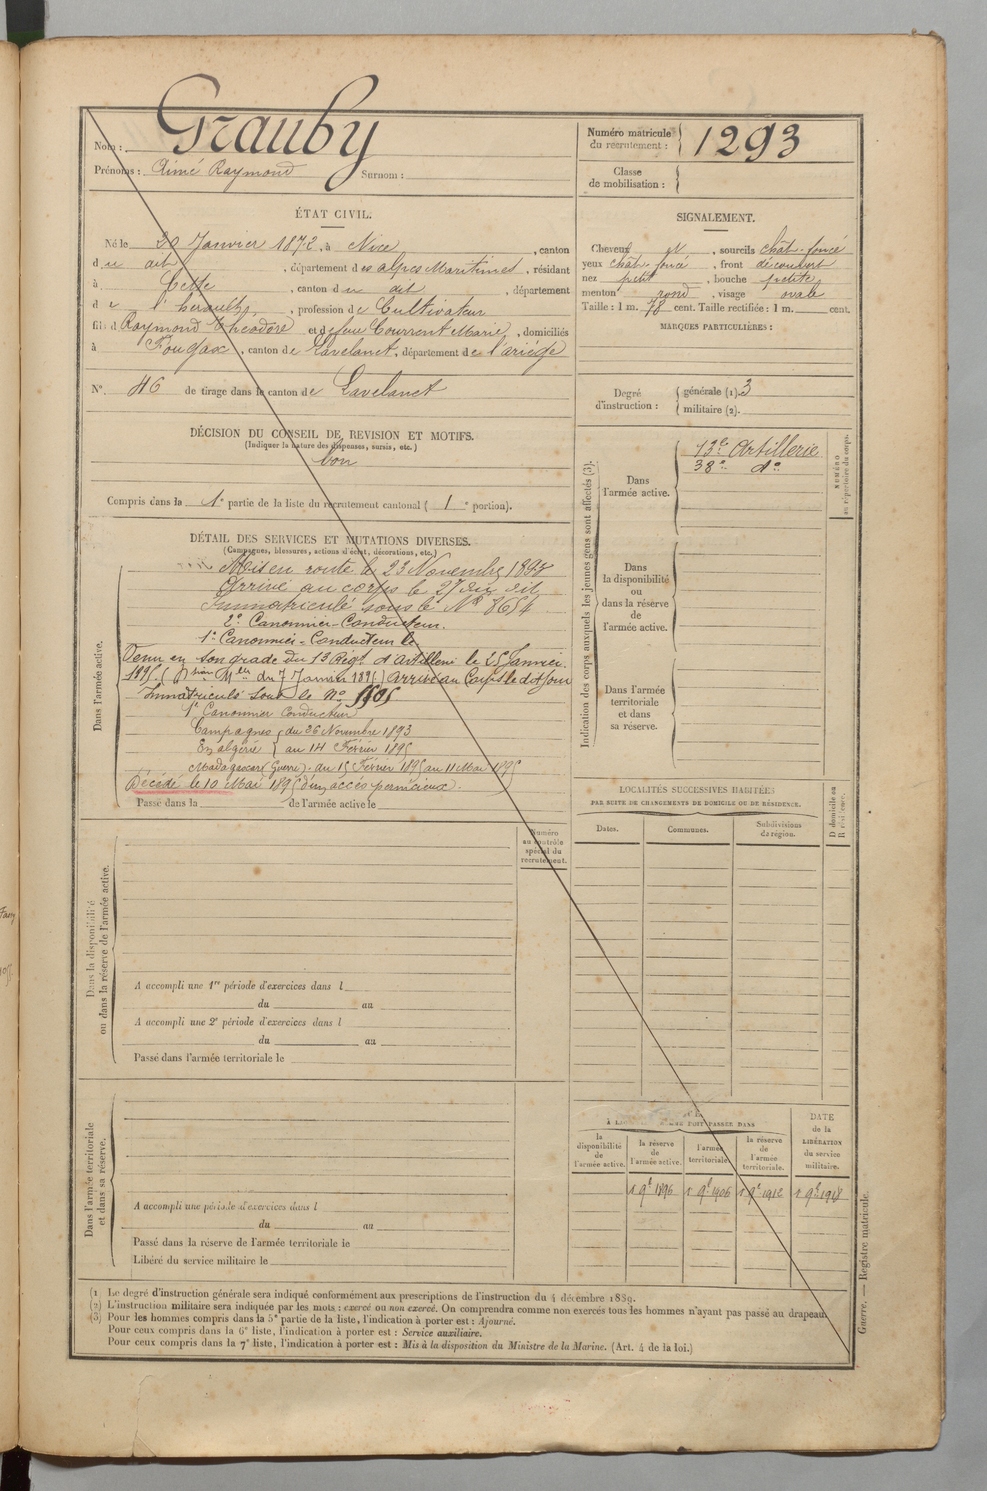 Nom : Grauby
Prénoms : Aimé Raymond Surnom :
Numéro matricule du recrutement : 1293
Classe de mobilisation :
ÉTAT CIVIL.
Né le 20 Janvier 1872, à Nice, canton
du dit, département des alpes Maritimes, résidant
à Cette, canton du dit, département
de l'herault, profession de Cultivateur
fils de Raymond Théodore et de feue Courrent Marie, domiciliés
à Fougax, canton de Lavelanet, département de l'ariège
N° 46 de tirage dans le canton de Lavelanet
SIGNALEMENT.
Cheveux et, sourcils chât. foncé
yeux chât. foncé, front découvert
nez petit, bouche petite
menton rond, visage ovale
Taille : 1 m. 78 cent. Taille rectifiée : 1 m. cent.
MARQUES PARTICULIÈRES :
Degré d'instruction : générale (1). 3
militaire (2).
DÉCISION DU CONSEIL DE REVISION ET MOTIFS.
(Indiquer la nature des dispenses, sursis, etc.)
bon
Compris dans la 1e partie de la liste du recrutement cantonal (1e portion).
DÉTAIL DES SERVICES ET MUTATIONS DIVERSES.
(Campagnes, blessures, actions d'éclat, décorations, etc.)
Dans l'armée active.
Mis en route le 23 Novembre
Arrivé au corps le 27 dit
Immatriculé sous le N° 8684
2e Canonnier-Conducteur.
1e Canonnier-Conducteur le
Venu en son grade du 13 Régt d'artillerie le 25 Janvier
1895 (Dsion Melle du 7 Janvier 1895) arrivé au Corps le dit Jour
Immatriculé sous le No
1e Canonnier Conducteur
Campagnes du 26 Novembre 1893
En algérie au 14 Février 1895
Madagascar (Guerre). du 15 Février 1895 au 11 Mai 1895
Décédé le 10 Mai 1895 d'un accès pernicieux.
Passé dans la de l'armée active le
Indication des corps auxquels les jeunes gens sont affectés (3).
NUMÉRO au répertoire du corps.
Dans l'armée active.
13e Artillerie
38e do
Dans la disponibilité ou dans la réserve de l'armée active.
Dans l'armée territoriale et dans sa réserve.
LOCALITÉS SUCCESSIVES HABITÉES
PAR SUITE DE CHANGEMENTS DE DOMICILE OU DE RÉSIDENCE.
Dates. Communes. Subdivisions de région. D domicile ou R résidence.
Numéro au contrôle spécial du recrutement.
Dans la disponibilité ou dans la réserve de l'armée active.
A accompli une 1re période d'exercices dans l
du au
A accompli une 2e période d'exercices dans l
du au
Passé dans l'armée territoriale le
Dans l'armée territoriale et dans sa réserve.
A accompli une période d'exercices dans l
du au
Passé dans la réserve de l'armée territoriale le
Libéré du service militaire le
DOIT PASSER DANS
la disponibilité de l'armée active.
la réserve de l'armée active.
l'armée territoriale.
la réserve de l'armée territoriale.
DATE de la LIBÉRATION du service militaire.
1 9e 1896 1 9e 1906 1 9e 1912 1 9e 1918
(1) Le degré d'instruction générale sera indiqué conformément aux prescriptions de l'instruction du 4 décembre 1889.
(2) L'instruction militaire sera indiquée par les mots : exercé ou non exercé. On comprendra comme non exercés tous les hommes n'ayant pas passé au drapeau.
(3) Pour les hommes compris dans la 5e partie de la liste, l'indication à porter est : Ajourné.
Pour ceux compris dans la 6e liste, l'indication à porter est : Service auxiliaire.
Pour ceux compris dans la 7e liste, l'indication à porter est : Mis à la disposition du Ministre de la Marine. (Art. 4 de la loi.)
Guerre. — Registre matricule.